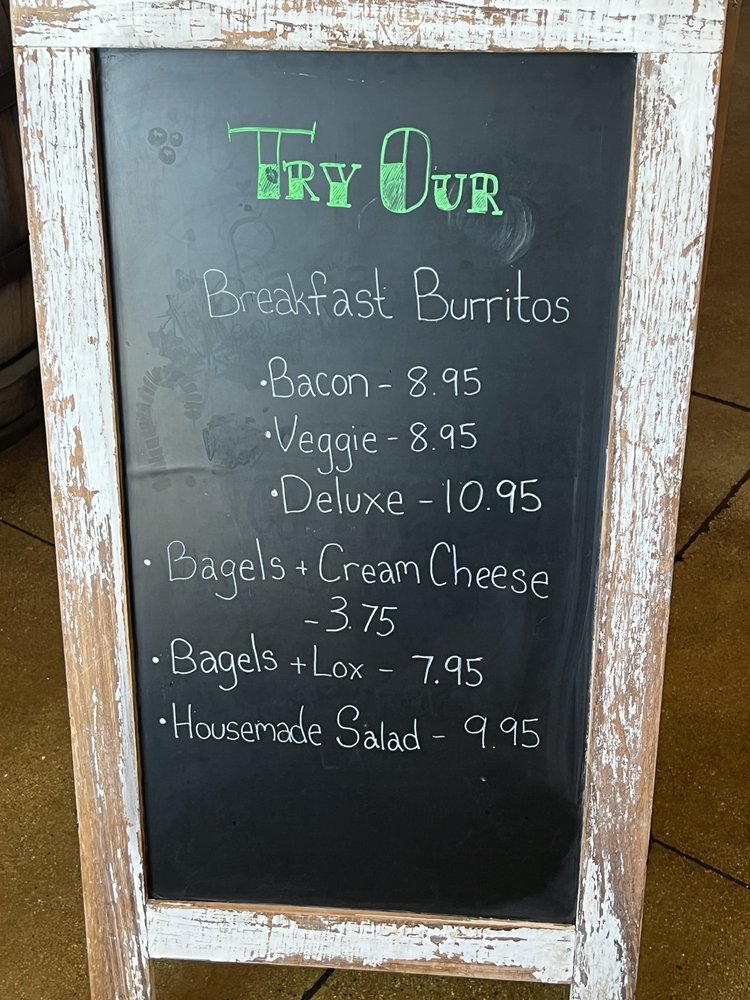 Try Our
Breakfast Burritos
•Bacon - 8.95
•Veggie - 8.95
•Deluxe - 10.95
• Bagels + Cream Cheese
- 3.75
• Bagels + Lox - 7.95
•Housemade Salad - 9.95